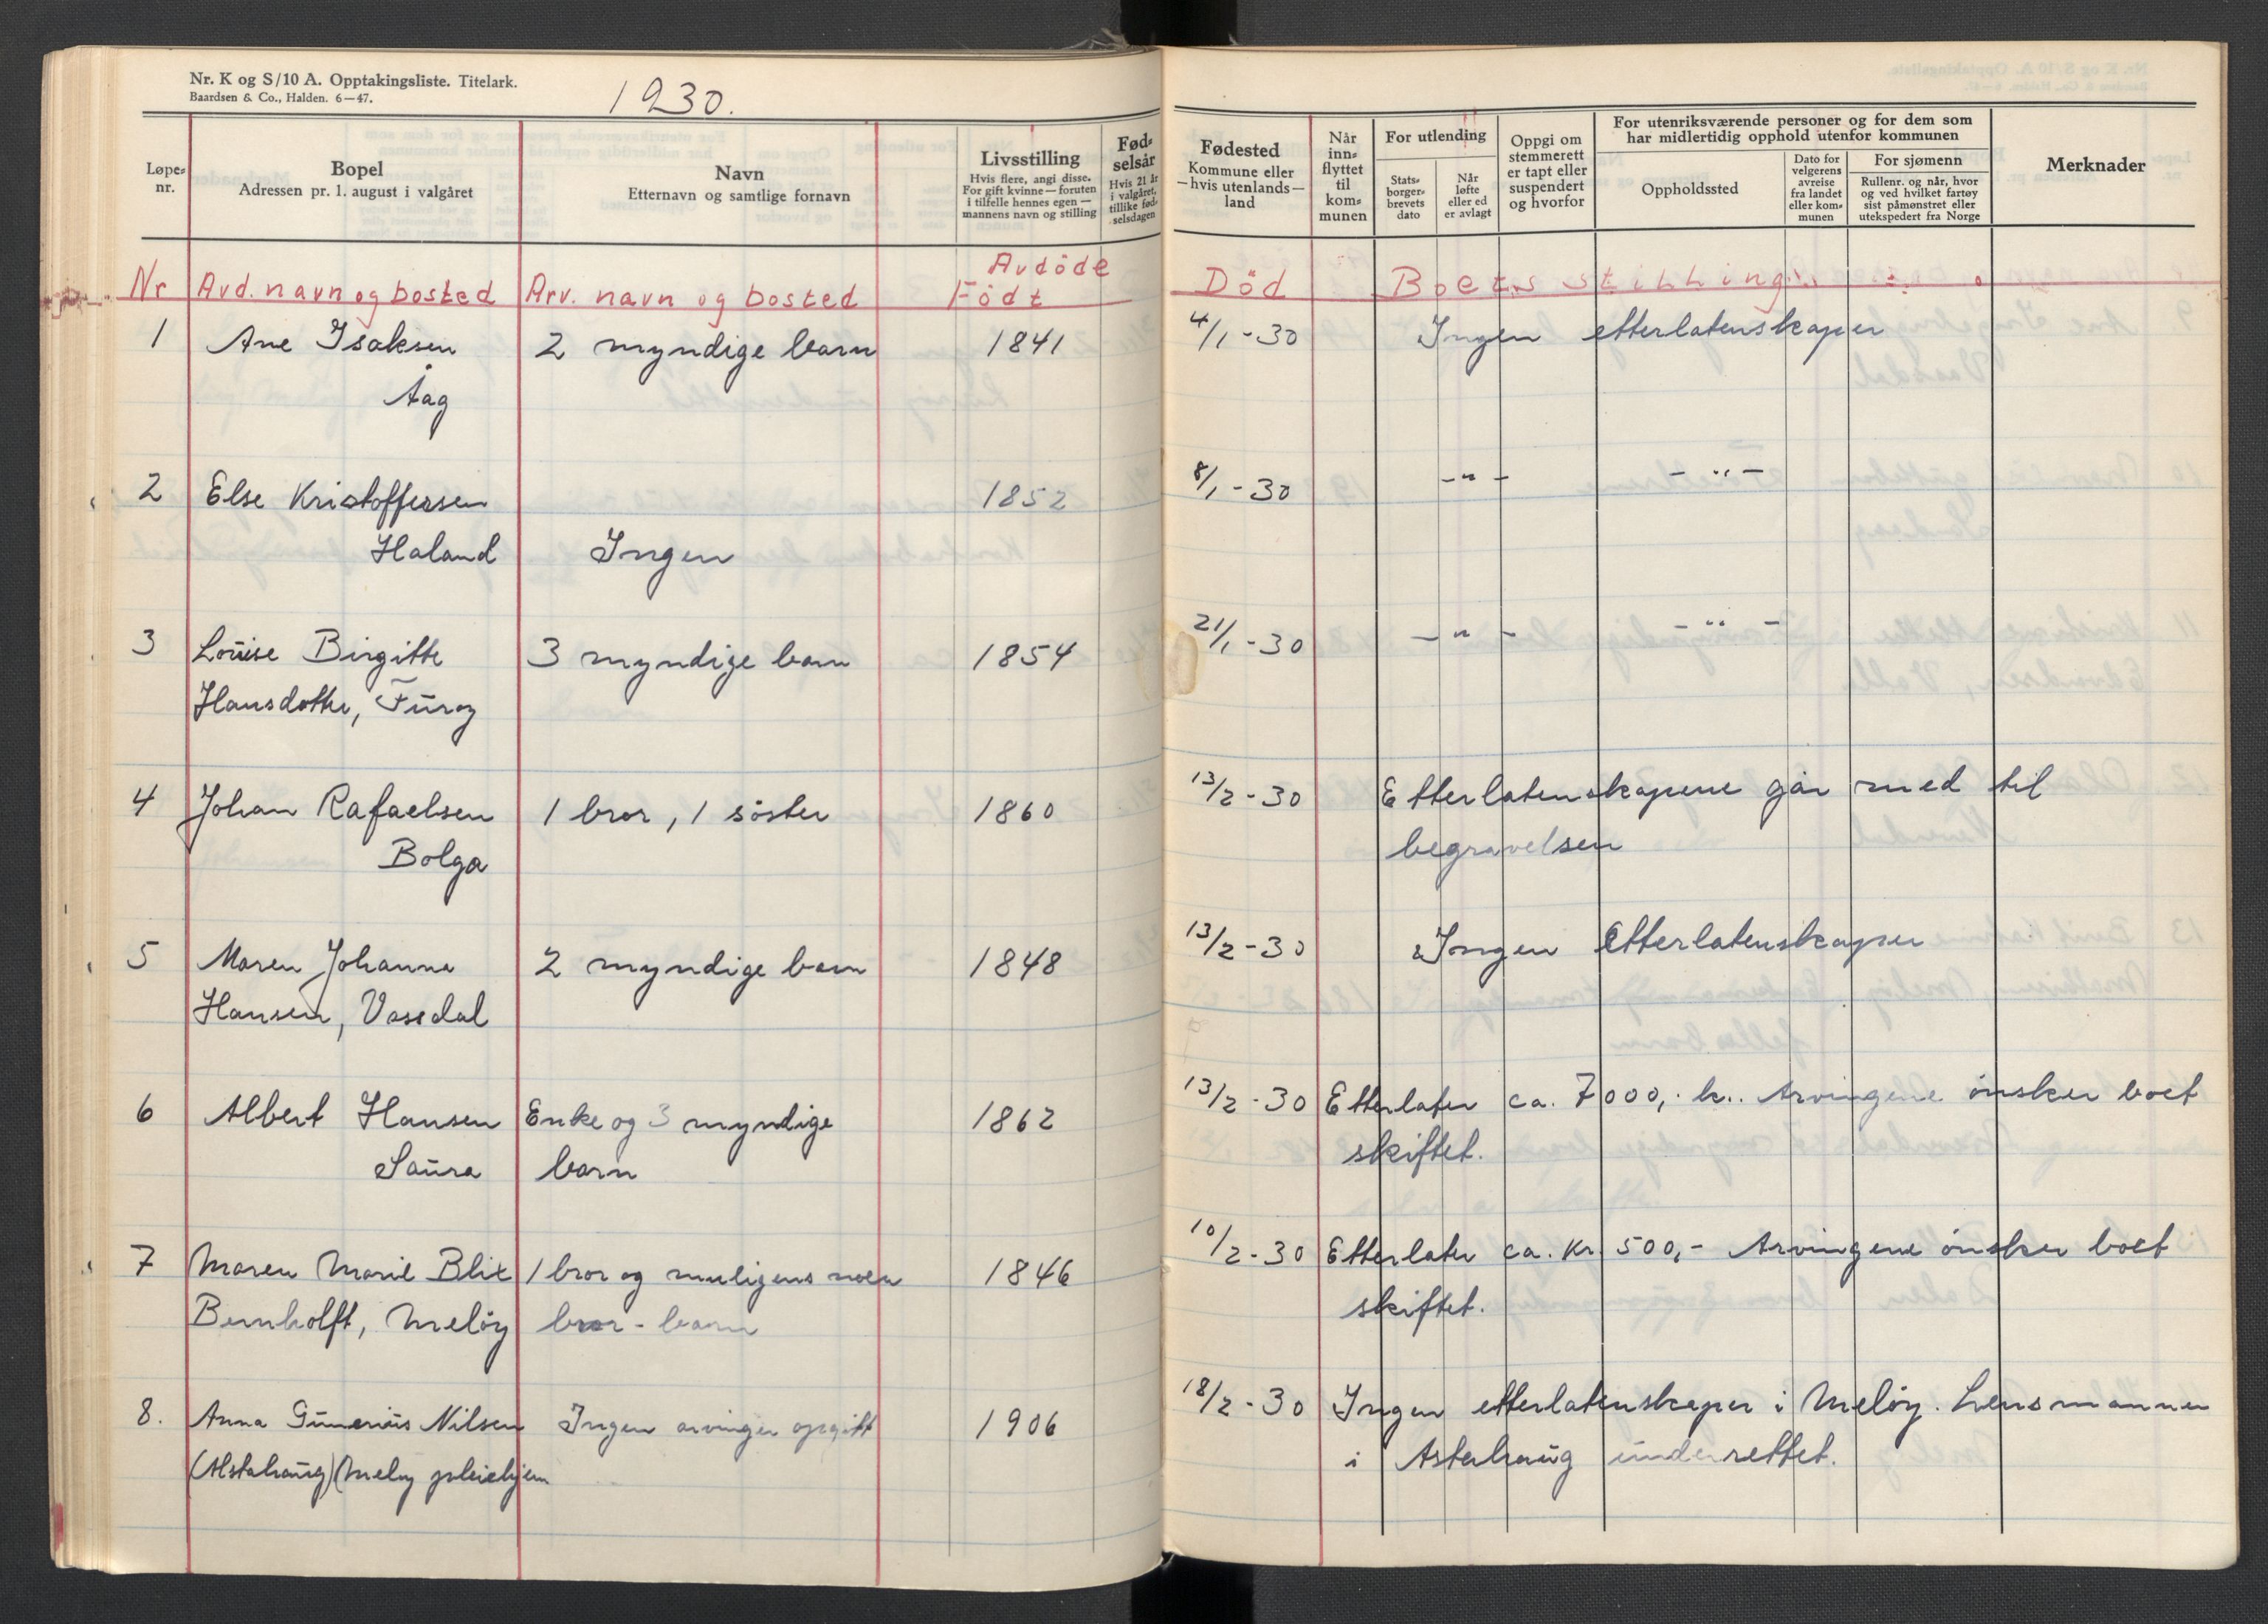 Nr. K og S/10 A. Opptakingsliste. Titelark.
Baardsen & Co., Halden. 6—47.
1930.
Løpe-nr.
Bopel
Adressen pr. 1. august i valgåret
Navn
Etternavn og samtlige fornavn
Livsstilling
Hvis flere, angi disse.
For gift kvinne — foruten
i tilfelle hennes egen —
mannens navn og stilling
Fød-
selsår
Hvis 21 år
i valgåret,
tillike fød-
selsdagen
Fødested
Kommune eller
— hvis utenlands —
land
Når
inn-
flyttet
til
kom-
munen
For utlending
Stats-
borger-
brevets
dato
Når
løfte
eller ed
er avlagt
Oppgi om
stemmerett
er tapt eller
suspendert
og hvorfor
For utenriksværende personer og for dem som
har midlertidig opphold utenfor kommunen
Oppholdssted
Dato for
velgerens
avreise
fra landet
eller kom-
munen
For sjømenn
Rullenr. og når, hvor
og ved hvilket fartøy
sist påmønstret eller
utekspedert fra Norge
Merknader
Nr Avd. navn og bosted Arv. navn og bosted Avdöde Födt Död Boets stilling
1 Ane Isaksen 2 myndige barn 1841 4/1-30 Ingen etterlatenskaper
Åag
2 Else Kristoffersen 1852 8/1-30 -"- -"-
Haland Ingen
3 Louise Birgitte 3 myndige barn 1854 21/1-30 -"- -"-
Hansdotter, Furøy
4 Johan Rafaelsen 1 bror, 1 söster 1860 13/2-30 Etterlatenskapene går med til
Bolga begravelsen
5 Maren Johanna 2 myndige barn 1848 13/2-30 Ingen Etterlatenskaper
Hansen, Vassdal
6 Albert Hansen Enke og 3 myndige 1862 13/2-30 Etterlater ca. 7000,- kr. Arvingene ønsker boet
Saura barn skiftet.
7 Maren Marie Blix 1 bror og muligens noen 1846 10/2-30 Etterlater ca. kr 500,- Arvingene ønsker boet
Bernhofft, Meløy bror-barn skiftet.
8. Anna Gunerius Nilsen Ingen arvinger opgitt 1906 18/2-30 Ingen etterlatenskaper i Meløy. Lensmannen
(Alstahaug) (Meløy pleiehjem i Astahaug underrettet.